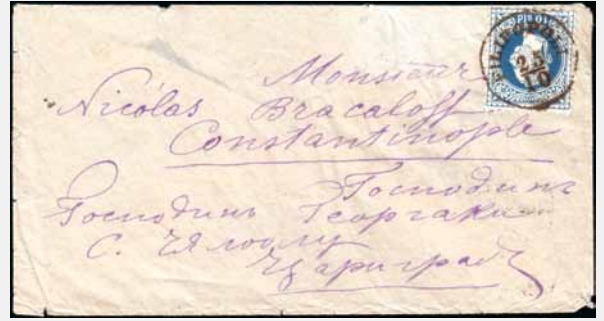 PHILIPPOPOLI
25
10
Monsieur
Nicólas Bracaloff
Constantinople
Господинъ
Господинъ Георгаки
С. Чалоолу
Цариградъ